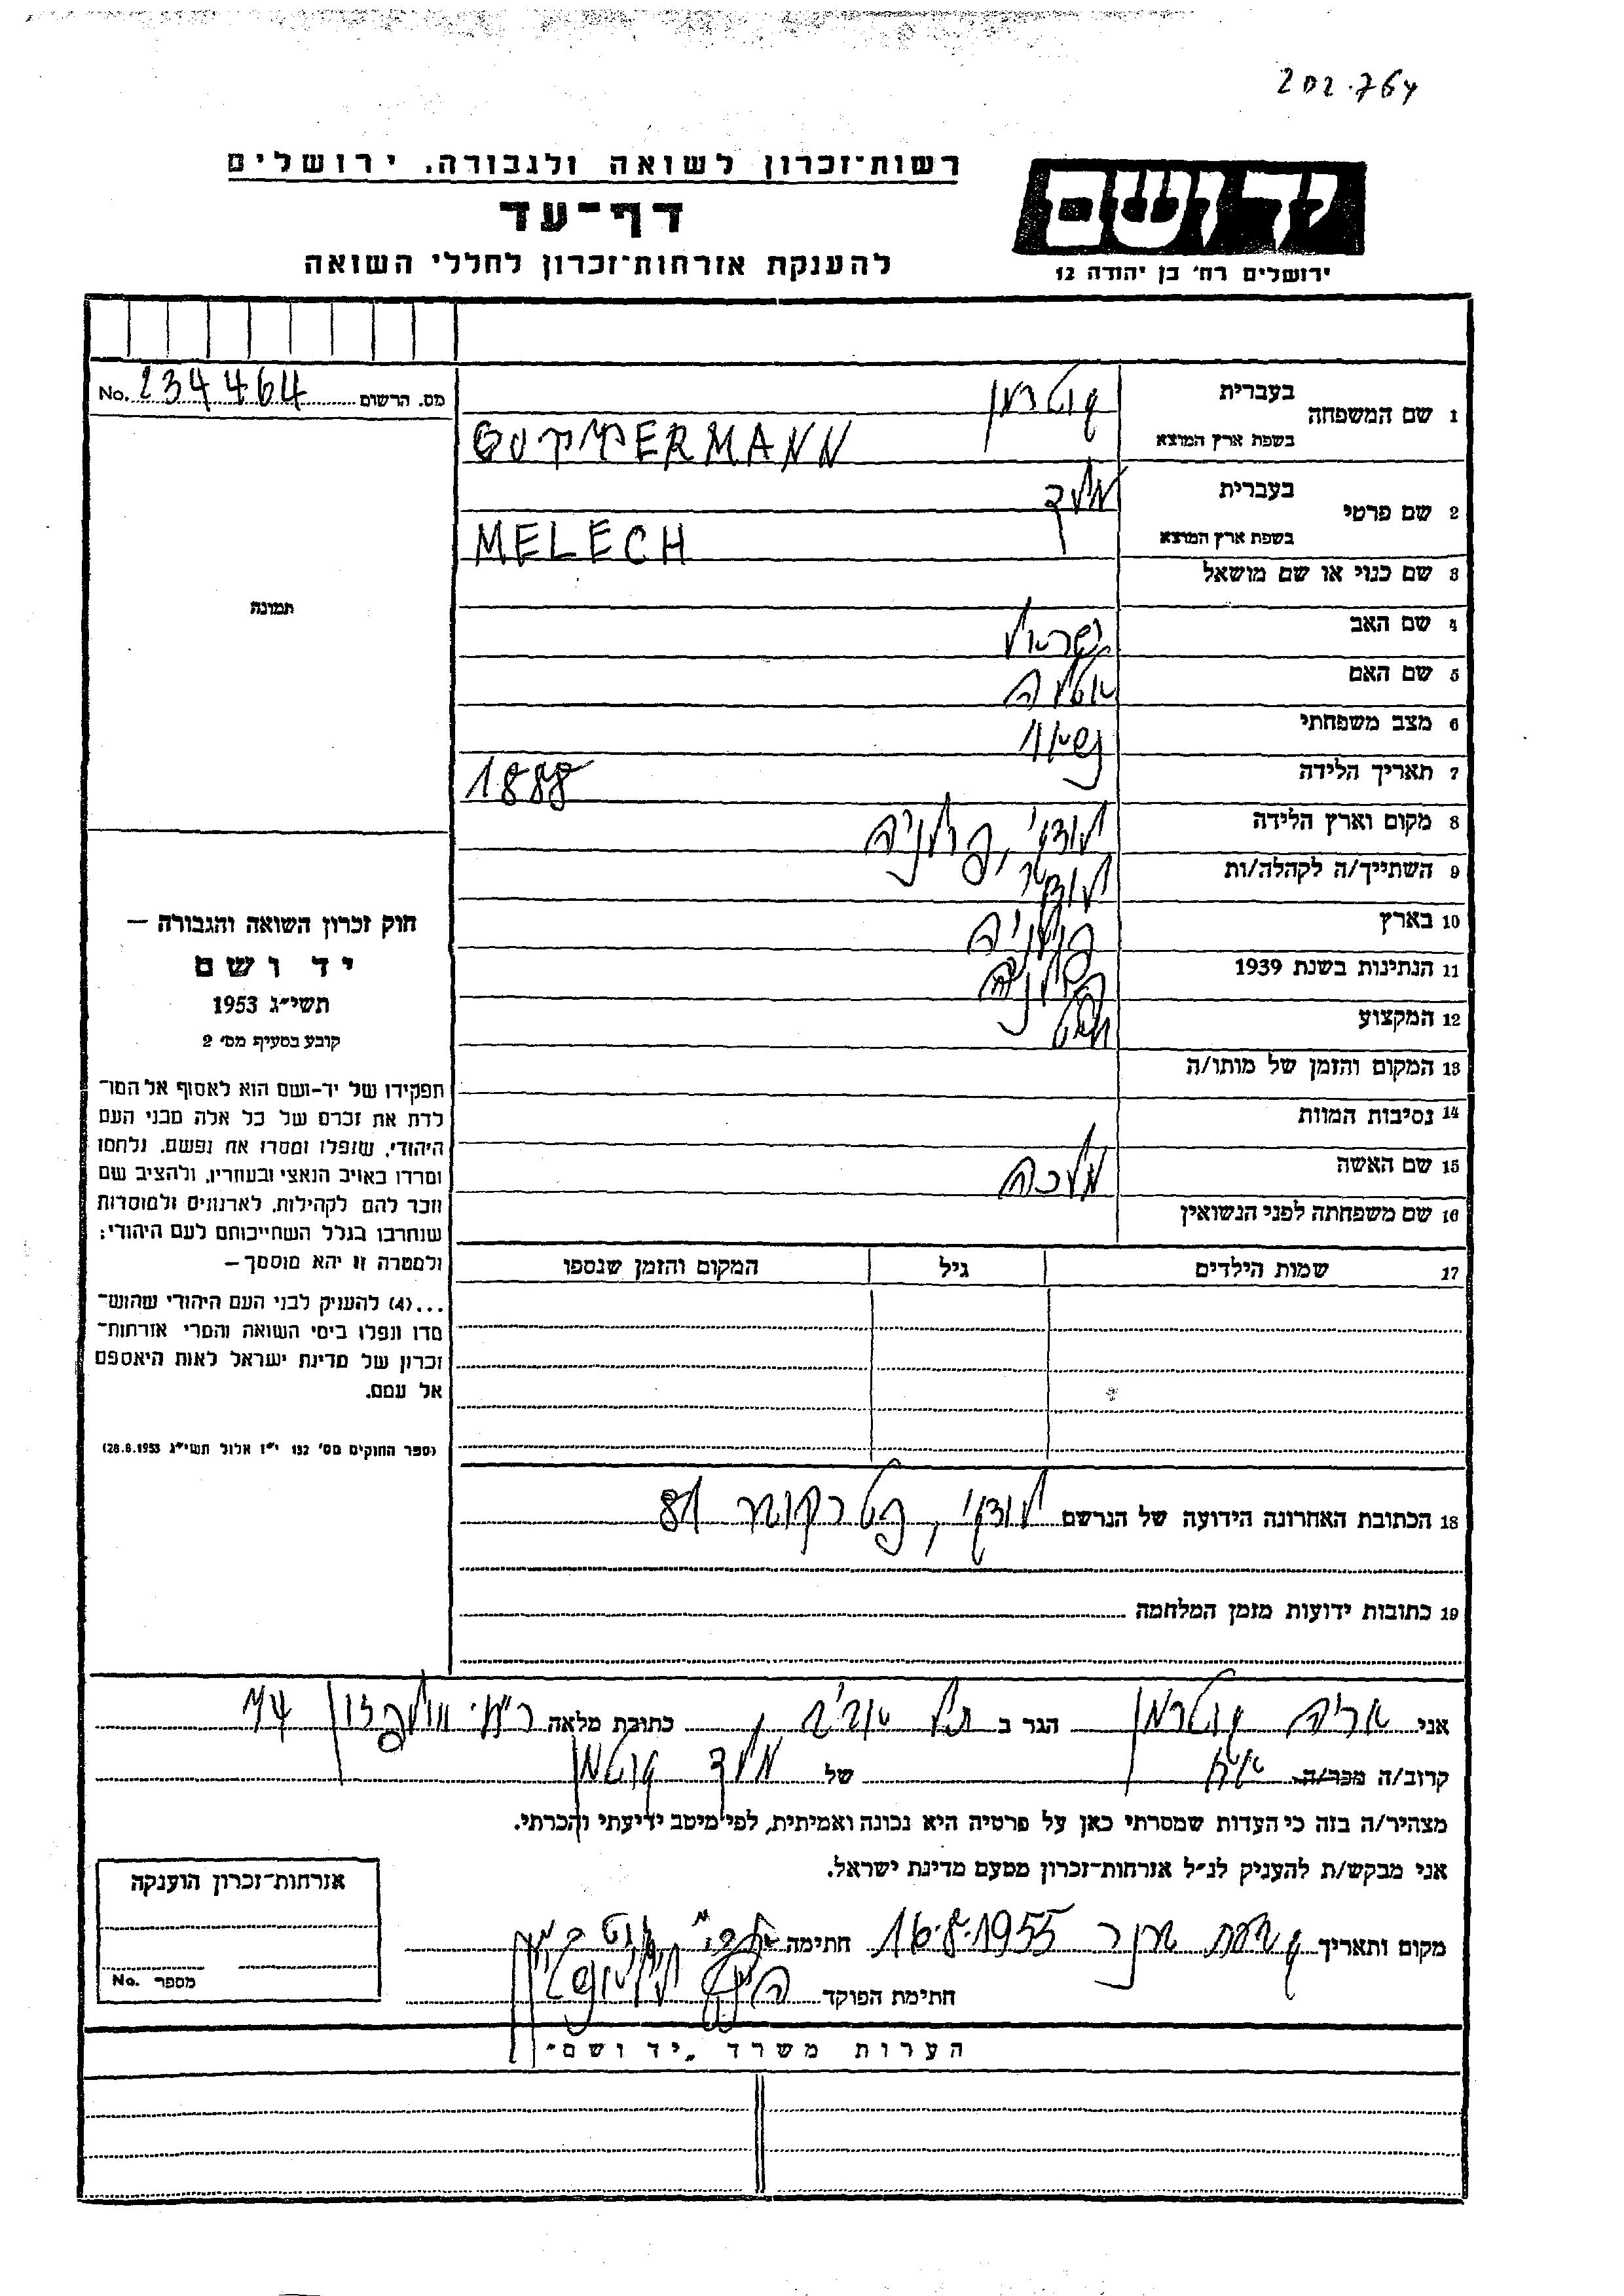 202.764
רשות־זכרון לשואה ולגבורה, ירושלים
דף־עד
להענקת אזרחות־זכרון לחללי השואה
יד ושם
ירושלים רח׳ בן יהודה 12
מס. הרשום 234464 No.
תמונה
חוק זכרון השואה והגבורה —
יד ושם
תשי״ג 1953
קובע בסעיף מס׳ 2
תפקידו של יד-ושם הוא לאסוף אל המו־
לדת את זכרם של כל אלה מבני העם
היהודי, שנפלו ומסרו את נפשם, נלחמו
ומרדו באויב הנאצי ובעוזריו, ולהציב שם
וזכר להם לקהילות, לארגונים ולמוסדות
שנחרבו בגלל השתייכותם לעם היהודי;
ולמטרה זו יהא מוסמך —
...(4) להעניק לבני העם היהודי שהוש־
מדו ונפלו בימי השואה והמרי אזרחות־
זכרון של מדינת ישראל לאות היאספם
אל עמם.
(ספר החוקים מס׳ 132 י״ז אלול תשי״ג 28.8.1953)
1 שם המשפחה בעברית גוטרמן
בשפת ארץ המוצא GUTTERMANN
2 שם פרטי בעברית מלך
בשפת ארץ המוצא MELECH
3 שם כנוי או שם מושאל
4 שם האב ישראל
5 שם האם
6 מצב משפחתי נשוי
7 תאריך הלידה 1888
8 מקום וארץ הלידה לודז׳, פולניה
9 השתייך/ה לקהלה/ות לודז׳
10 בארץ פולניה
11 הנתינות בשנת 1939 פולנית
12 המקצוע
13 המקום והזמן של מותו/ה
14 נסיבות המוות
15 שם האשה מלכה
16 שם משפחתה לפני הנשואין
17 שמות הילדים גיל המקום והזמן שנספו
18 הכתובת האחרונה הידועה של הנרשם לודז׳, פיוטרקובר 81
19 כתובות ידועות מזמן המלחמה
אני אריה גוטרמן הגר ב תל אביב, כתובת מלאה רח׳ וולפסון 44
קרוב/ה מכר/ה אח של מלך גוטרמן
מצהיר/ה בזה כי העדות שמסרתי כאן על פרטיה היא נכונה ואמיתית, לפי מיטב ידיעתי והכרתי.
אני מבקש/ת להעניק לנ״ל אזרחות-זכרון מטעם מדינת ישראל.
מקום ותאריך 16.8.1955 חתימה
חתימת הפוקד
אזרחות־זכרון הוענקה
מספר No.
הערות משרד „יד ושם״